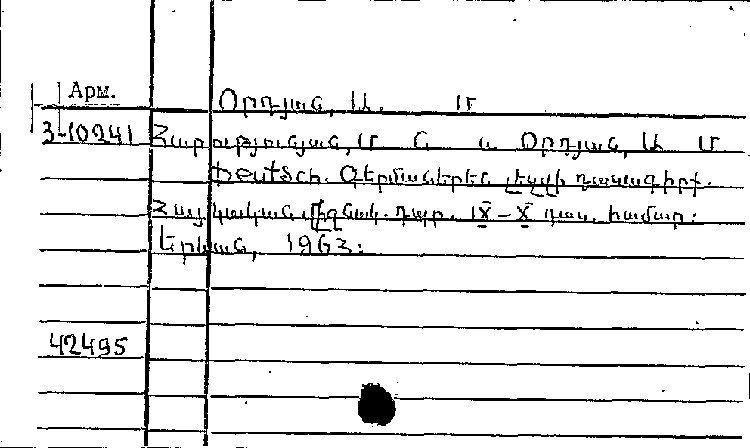 Арм.
Օրդյան, Ա. Մ
3-10241 Հարությունյան, Մ Ե և Օրդյան, Ա Մ
Deutsch. Գերմաներեն լեզվի դասագիրք.
Հայկական միջնակ. դպր. IX-X դաս. համար:
Երևան, 1963:
42495